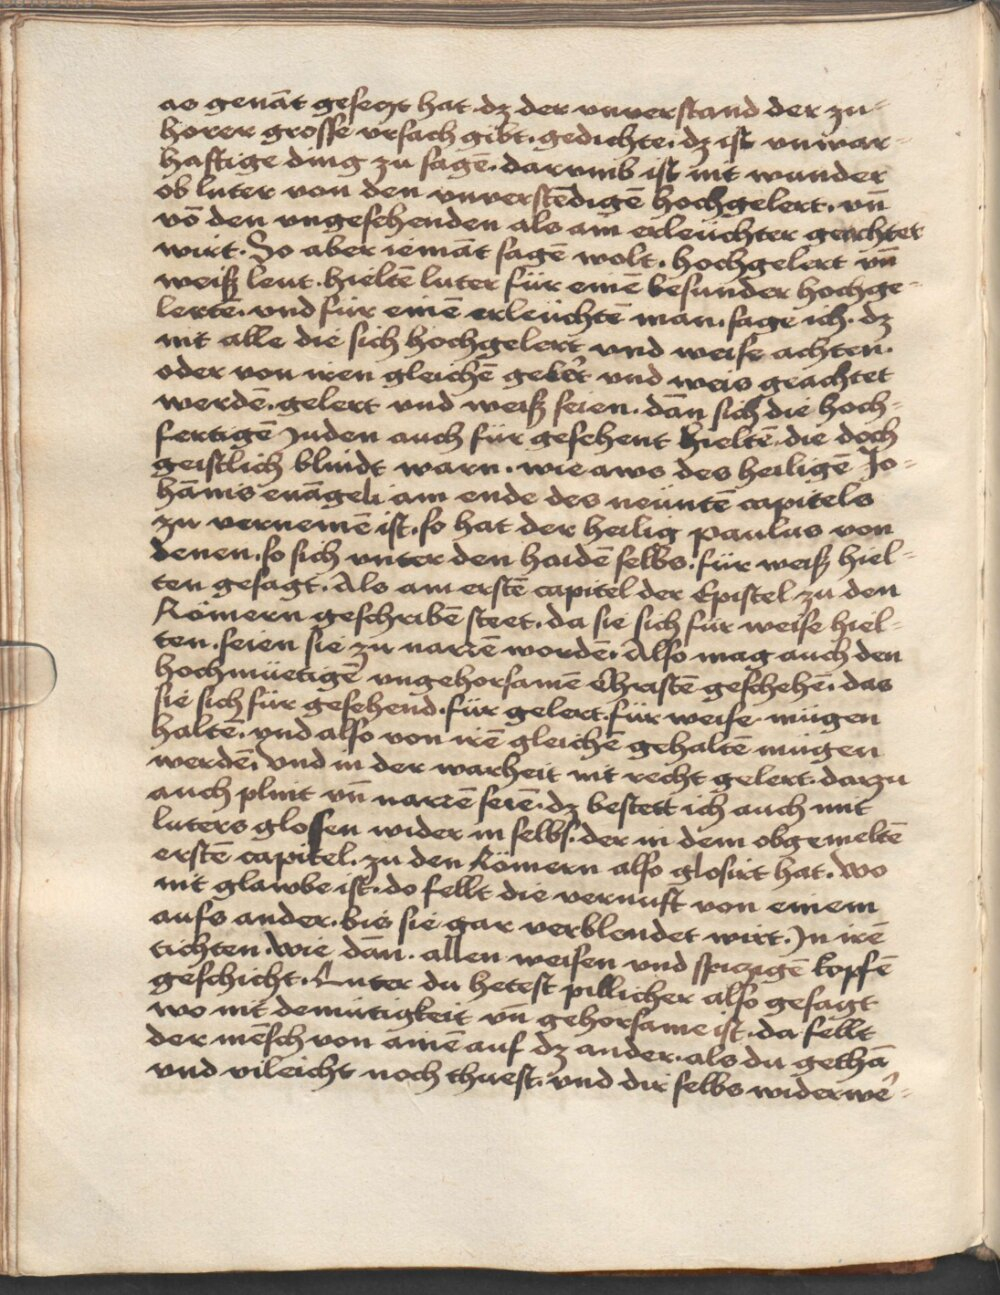 as genãt gesetzt hat. dz der vnverstand der zu-
horer grosse vrsach gibt. gedichte. dz ist vnwar-
hastige ding zu sagẽ. darvmb ist nit wunder
ob luter von den vnverstẽdigẽ hochgelert. vñ
võ den vngesehenden als am erleuchter geachtet
wirt. So aber iemãt sagẽ wolt. hochgelert vñ
weiß leut. hieltẽ luter für einẽ besunder hochge-
lertẽ. vnd für einẽ erleüchtẽ man. sage ich. dz
nit alle die sich hochgelert vnd weise achten.
oder von iren gleichẽ gelert vnd weis geachtet
werdẽ. gelert vnd weiß seien. dãn sich die hoch-
fertigẽ Juden auch für gesehent hieltẽ. die doch
geistlich blindt warn. wie aws des heiligẽ Jo-
hãnis euãgeli am ende des neüntẽ capitels
zu vernemẽ ist. so hat der heilig paulus von
denen. so sich vnter den haidẽ selbs. für weiß hiel-
ten gesagt. Als am erstẽ capitel der Epistel zu den
Römern geschribẽ steet. da sie sich für weise hiel-
ten. seien sie zu narrẽ wordẽ. Also mag auch den
hochmüetigẽ vngehorsamẽ Christẽ geschehẽ. das
sie sich für gesehend. für gelert. für weise mügen
haltẽ. vnd also von irẽ gleichẽ gehaltẽ mügen
werdẽ. vnd in der warheit nit recht gelert. darzu
auch plint vñ narrẽ seiẽ. dz bestett ich auch mit
luters glosen wider in selbs. der in dem obgemeltẽ
erstẽ capitel. zu den Römern also glosirt hat. wo
nit glawbe ist. do fellt die vernuft von einem
aufs ander. bis sie gar verblendet wirt. Jn irẽ
tichten. wie dãn. allen weisen und spiczigẽ kopfẽ
geschicht. Luter du hetest pillicher also gesagt
wo nit demütigkeit vñ gehorsame ist. da fellt
der mẽsch von ainẽ auf dz ander. als du gethã
vnd vileicht noch thuest. vnd dir selbs widerwẽ-